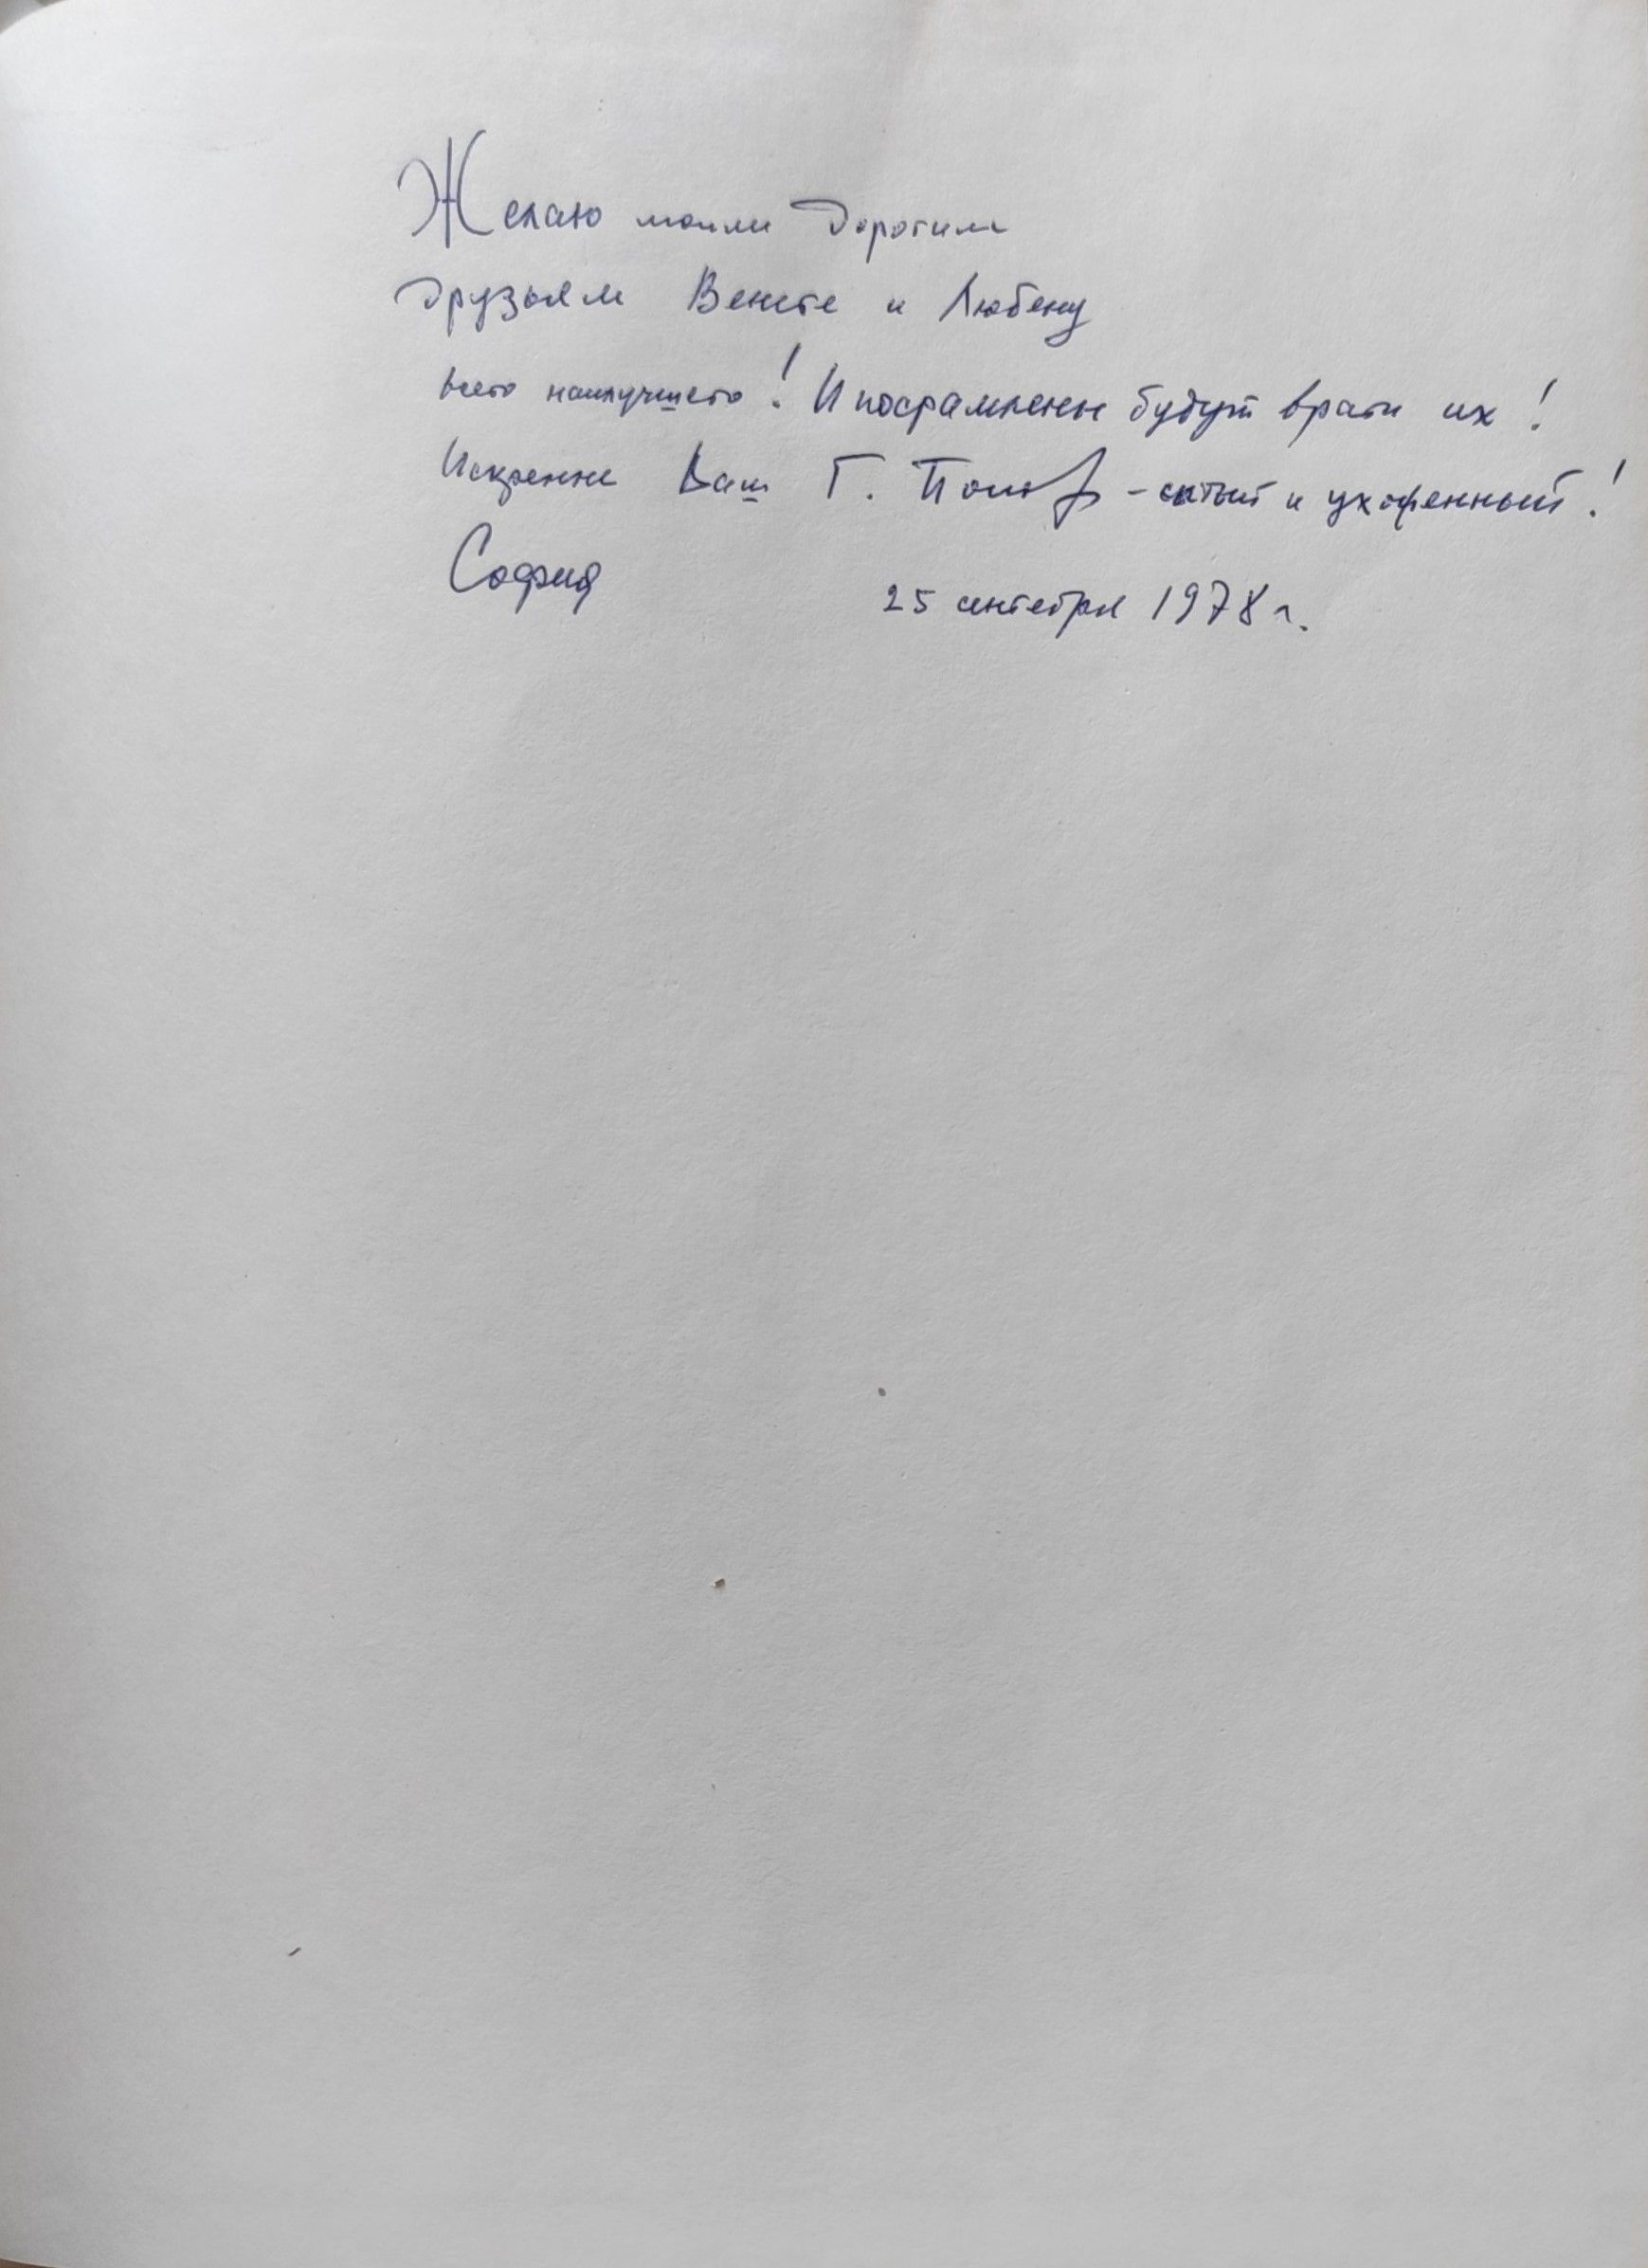 Желаю моим дорогим
друзьям Венете и Любену
всего наилучшего! И посрамлены будут враги их!
Искренне Ваш Г. - сытый и ухоженный!
София 25 сентября 1978 г.